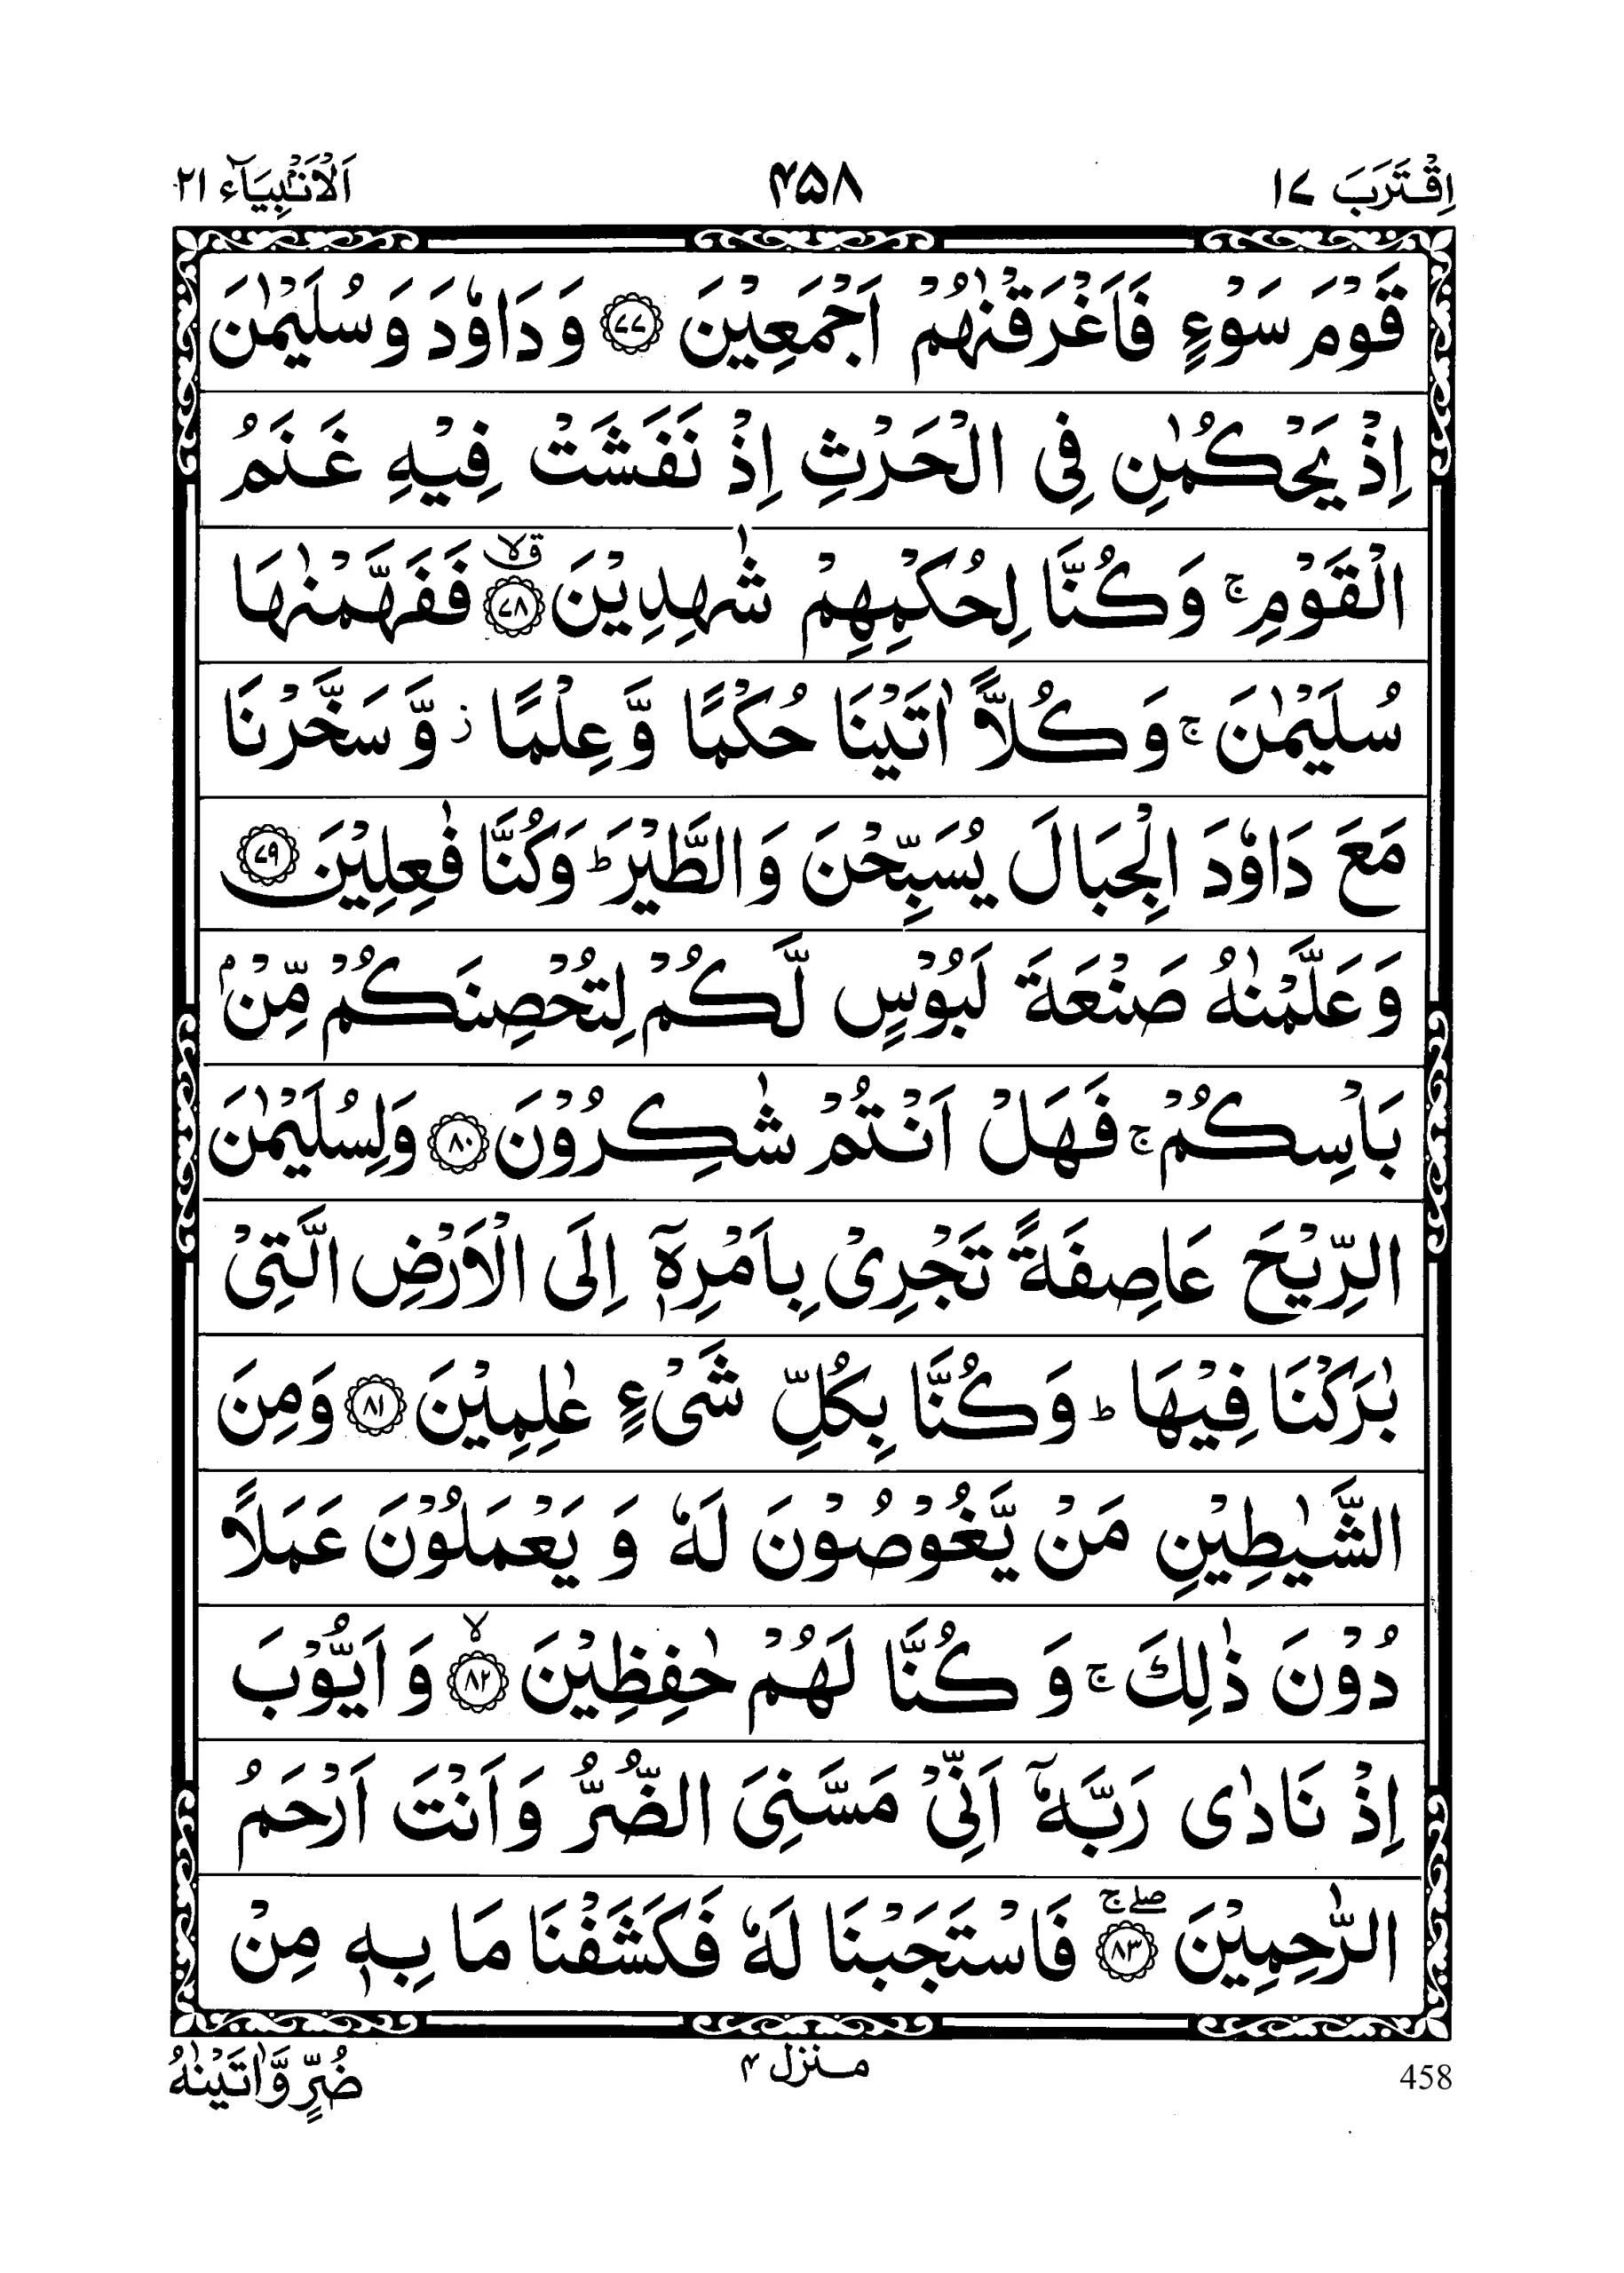 اِقْتَرَبَ ١٧
۴۵۸
اَلْاَنْۢبِيَآء ٢١
قَوْمَ سَوْءٍ فَاَغْرَقْنٰهُمْ اَجْمَعِيْنَ ﴿٧٧﴾ وَ دَاوٗدَ وَ سُلَيْمٰنَ
اِذْ يَحْكُمٰنِ فِى الْحَرْثِ اِذْ نَفَشَتْ فِيْهِ غَنَمُ
الْقَوْمِ ۚ وَ كُنَّا لِحُكْمِهِمْ شٰهِدِيْنَ ﴿٧٨﴾ ق لا فَفَهَّمْنٰهَا
سُلَيْمٰنَ ۚ وَ كُلًّا اٰتَيْنَا حُكْمًا وَّ عِلْمًا ز وَّ سَخَّرْنَا
مَعَ دَاوٗدَ الْجِبَالَ يُسَبِّحْنَ وَ الطَّيْرَ ؕ وَ كُنَّا فٰعِلِيْنَ ﴿٧٩﴾
وَ عَلَّمْنٰهُ صَنْعَةَ لَبُوْسٍ لَّكُمْ لِتُحْصِنَكُمْ مِّنْۢ
بَاْسِكُمْ ۚ فَهَلْ اَنْتُمْ شٰكِرُوْنَ ﴿٨٠﴾ وَ لِسُلَيْمٰنَ
الرِّيْحَ عَاصِفَةً تَجْرِىْ بِاَمْرِهٖۤ اِلَى الْاَرْضِ الَّتِىْ
بٰرَكْنَا فِيْهَا ؕ وَ كُنَّا بِكُلِّ شَىْءٍ عٰلِمِيْنَ ﴿٨١﴾ وَ مِنَ
الشَّيٰطِيْنِ مَنْ يَّغُوْصُوْنَ لَهٗ وَ يَعْمَلُوْنَ عَمَلًا
دُوْنَ ذٰلِكَ ۚ وَ كُنَّا لَهُمْ حٰفِظِيْنَ ﴿٨٢﴾ ۙ وَ اَيُّوْبَ
اِذْ نَادٰى رَبَّهٗۤ اَنِّىْ مَسَّنِىَ الضُّرُّ وَ اَنْتَ اَرْحَمُ
الرّٰحِمِيْنَ ﴿٨٣﴾ صلے ج فَاسْتَجَبْنَا لَهٗ فَكَشَفْنَا مَا بِهٖ مِنْ
ضُرٍّ وَّاٰتَيْنٰهُ
منزل ۴
458